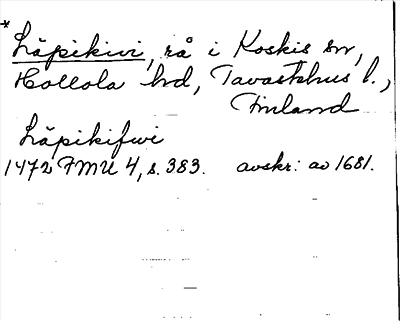 *
Läpikivi, rå i Koskis sn,
Hollola hd, Tavastehus l.,
Finland
Läpikifwi
1472 FMU 4, s. 383. avskr: av 1681.